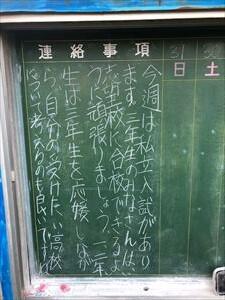 連絡事項
31
日
土
今週は私立入試があり
ます。三年生のみなさんは、
志望校に合格できるよ
うに頑張りましょう。一、二年
生は三年生を応援しなが
ら、自分の受けたい高校
について考えるのも良いですね。